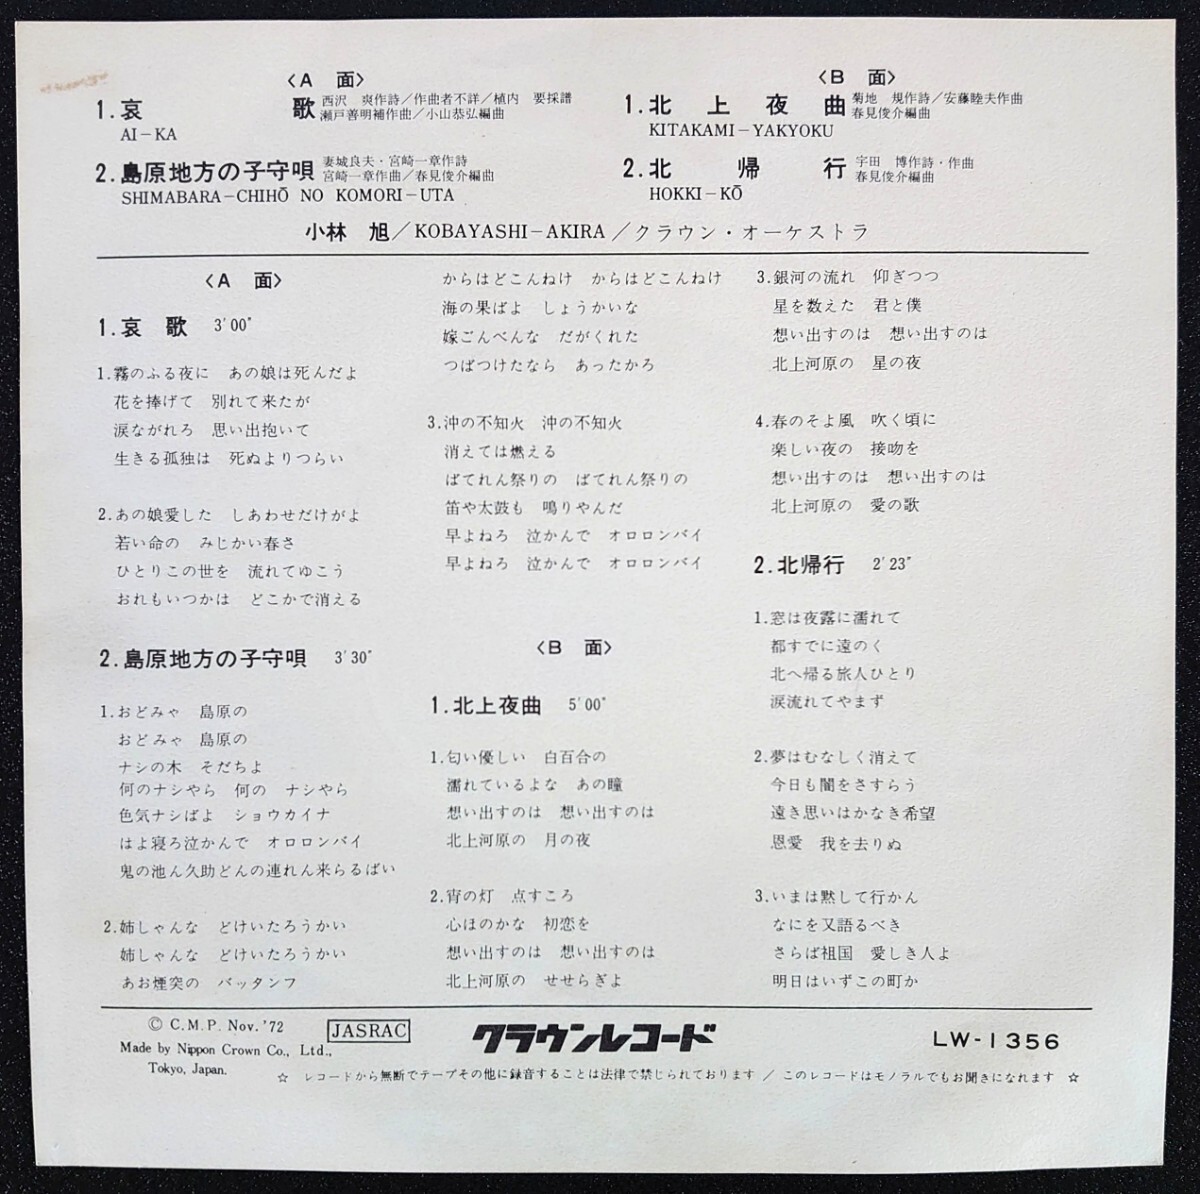 〈A 面〉
1.哀 歌 西沢 爽作詩/作曲者不詳/植内 要採譜
瀬戸善明補作曲/小山恭弘編曲
AI-KA
2.島原地方の子守唄 妻城良夫・宮崎一章作詩
宮崎一章作曲/春見俊介編曲
SHIMABARA-CHIHŌ NO KOMORI-UTA
〈B 面〉
1.北上夜曲 菊地 規作詩/安藤睦夫作曲
春見俊介編曲
KITAKAMI-YAKYOKU
2.北帰行 宇田 博作詩・作曲
春見俊介編曲
HOKKI-KŌ
小林 旭/KOBAYASHI-AKIRA/クラウン・オーケストラ
〈A 面〉
1.哀 歌 3'00"
1.霧のふる夜に あの娘は死んだよ
花を捧げて 別れて来たが
涙ながれろ 思い出抱いて
生きる孤独は 死ぬよりつらい
2.あの娘愛した しあわせだけがよ
若い命の みじかい春さ
ひとりこの世を 流れてゆこう
おれもいつかは どこかで消える
2.島原地方の子守唄 3'30"
1.おどみゃ 島原の
おどみゃ 島原の
ナシの木 そだちよ
何のナシやら 何の ナシやら
色気ナシばよ ショウカイナ
はよ寝ろ泣かんで オロロンバイ
鬼の池ん久助どんの連れん来らるばい
2.姉しゃんな どけいたろうかい
姉しゃんな どけいたろうかい
あお煙突の バッタンフ
からはどこんねけ からはどこんねけ
海の果ばよ しょうかいな
嫁ごんべんな だがくれた
つばつけたなら あったかろ
3.沖の不知火 沖の不知火
消えては燃える
ばてれん祭りの ばてれん祭りの
笛や太鼓も 鳴りやんだ
早よねろ 泣かんで オロロンバイ
早よねろ 泣かんで オロロンバイ
〈B 面〉
1.北上夜曲 5'00"
1.匂い優しい 白百合の
濡れているよな あの瞳
想い出すのは 想い出すのは
北上河原の 月の夜
2.宵の灯 点すころ
心ほのかな 初恋を
想い出すのは 想い出すのは
北上河原の せせらぎよ
3.銀河の流れ 仰ぎつつ
星を数えた 君と僕
想い出すのは 想い出すのは
北上河原の 星の夜
4.春のそよ風 吹く頃に
楽しい夜の 接吻を
想い出すのは 想い出すのは
北上河原の 愛の歌
2.北帰行 2'23"
1.窓は夜露に濡れて
都すでに遠のく
北へ帰る旅人ひとり
涙流れてやまず
2.夢はむなしく消えて
今日も闇をさすらう
遠き思いはかなき希望
恩愛 我を去りぬ
3.いまは黙して行かん
なにを又語るべき
さらば祖国 愛しき人よ
明日はいずこの町か
© C.M.P. Nov.'72
Made by Nippon Crown Co., Ltd.,
Tokyo, Japan.
JASRAC
クラウンレコード
LW-1356
☆ レコードから無断でテープその他に録音することは法律で禁じられております / このレコードはモノラルでもお聞きになれます ☆